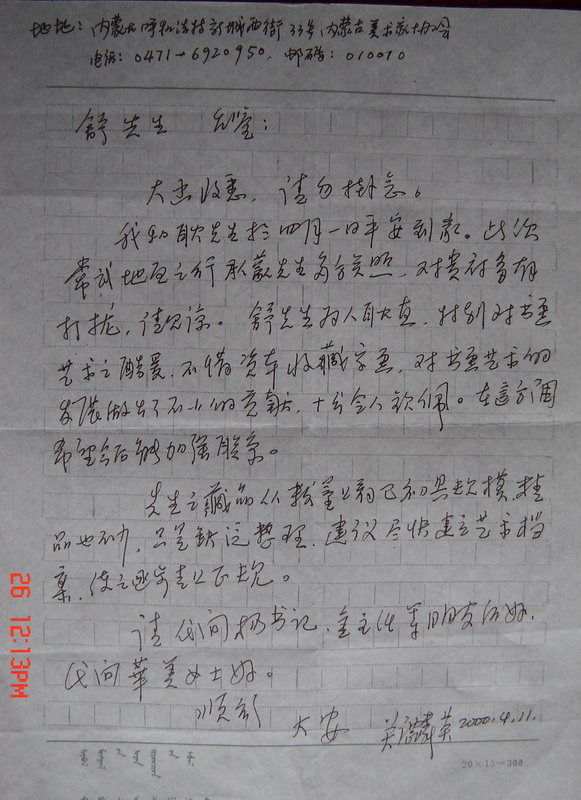 地址：内蒙古呼和浩特新城西街33号内蒙古美术家协会
电话：0471-6920950. 邮码：010010
舒先生 
大札收悉，请勿掛念。
我和耿先生於四月一日平安到家。此次
常武地区之行承蒙先生多方关照，对贵社多有
打扰，请见谅。舒先生为人耿直，特别对书画
艺术之酷爱，不惜资本收藏字画，对书画艺术的
发展做出了不小的贡献，十分令人钦佩。在這方面
希望今后能加强联系。
先生之藏品从数量上看已初具规模，精
品也不少，只是缺泛整理，建议尽快建立艺术档
案，使之逐步走上正规。
请代问杨书记、金主任等朋友们好，
代问華美女士好。
顺祝
大安 吴麟英 2000.4.11.
20×15=300
26 12:13PM